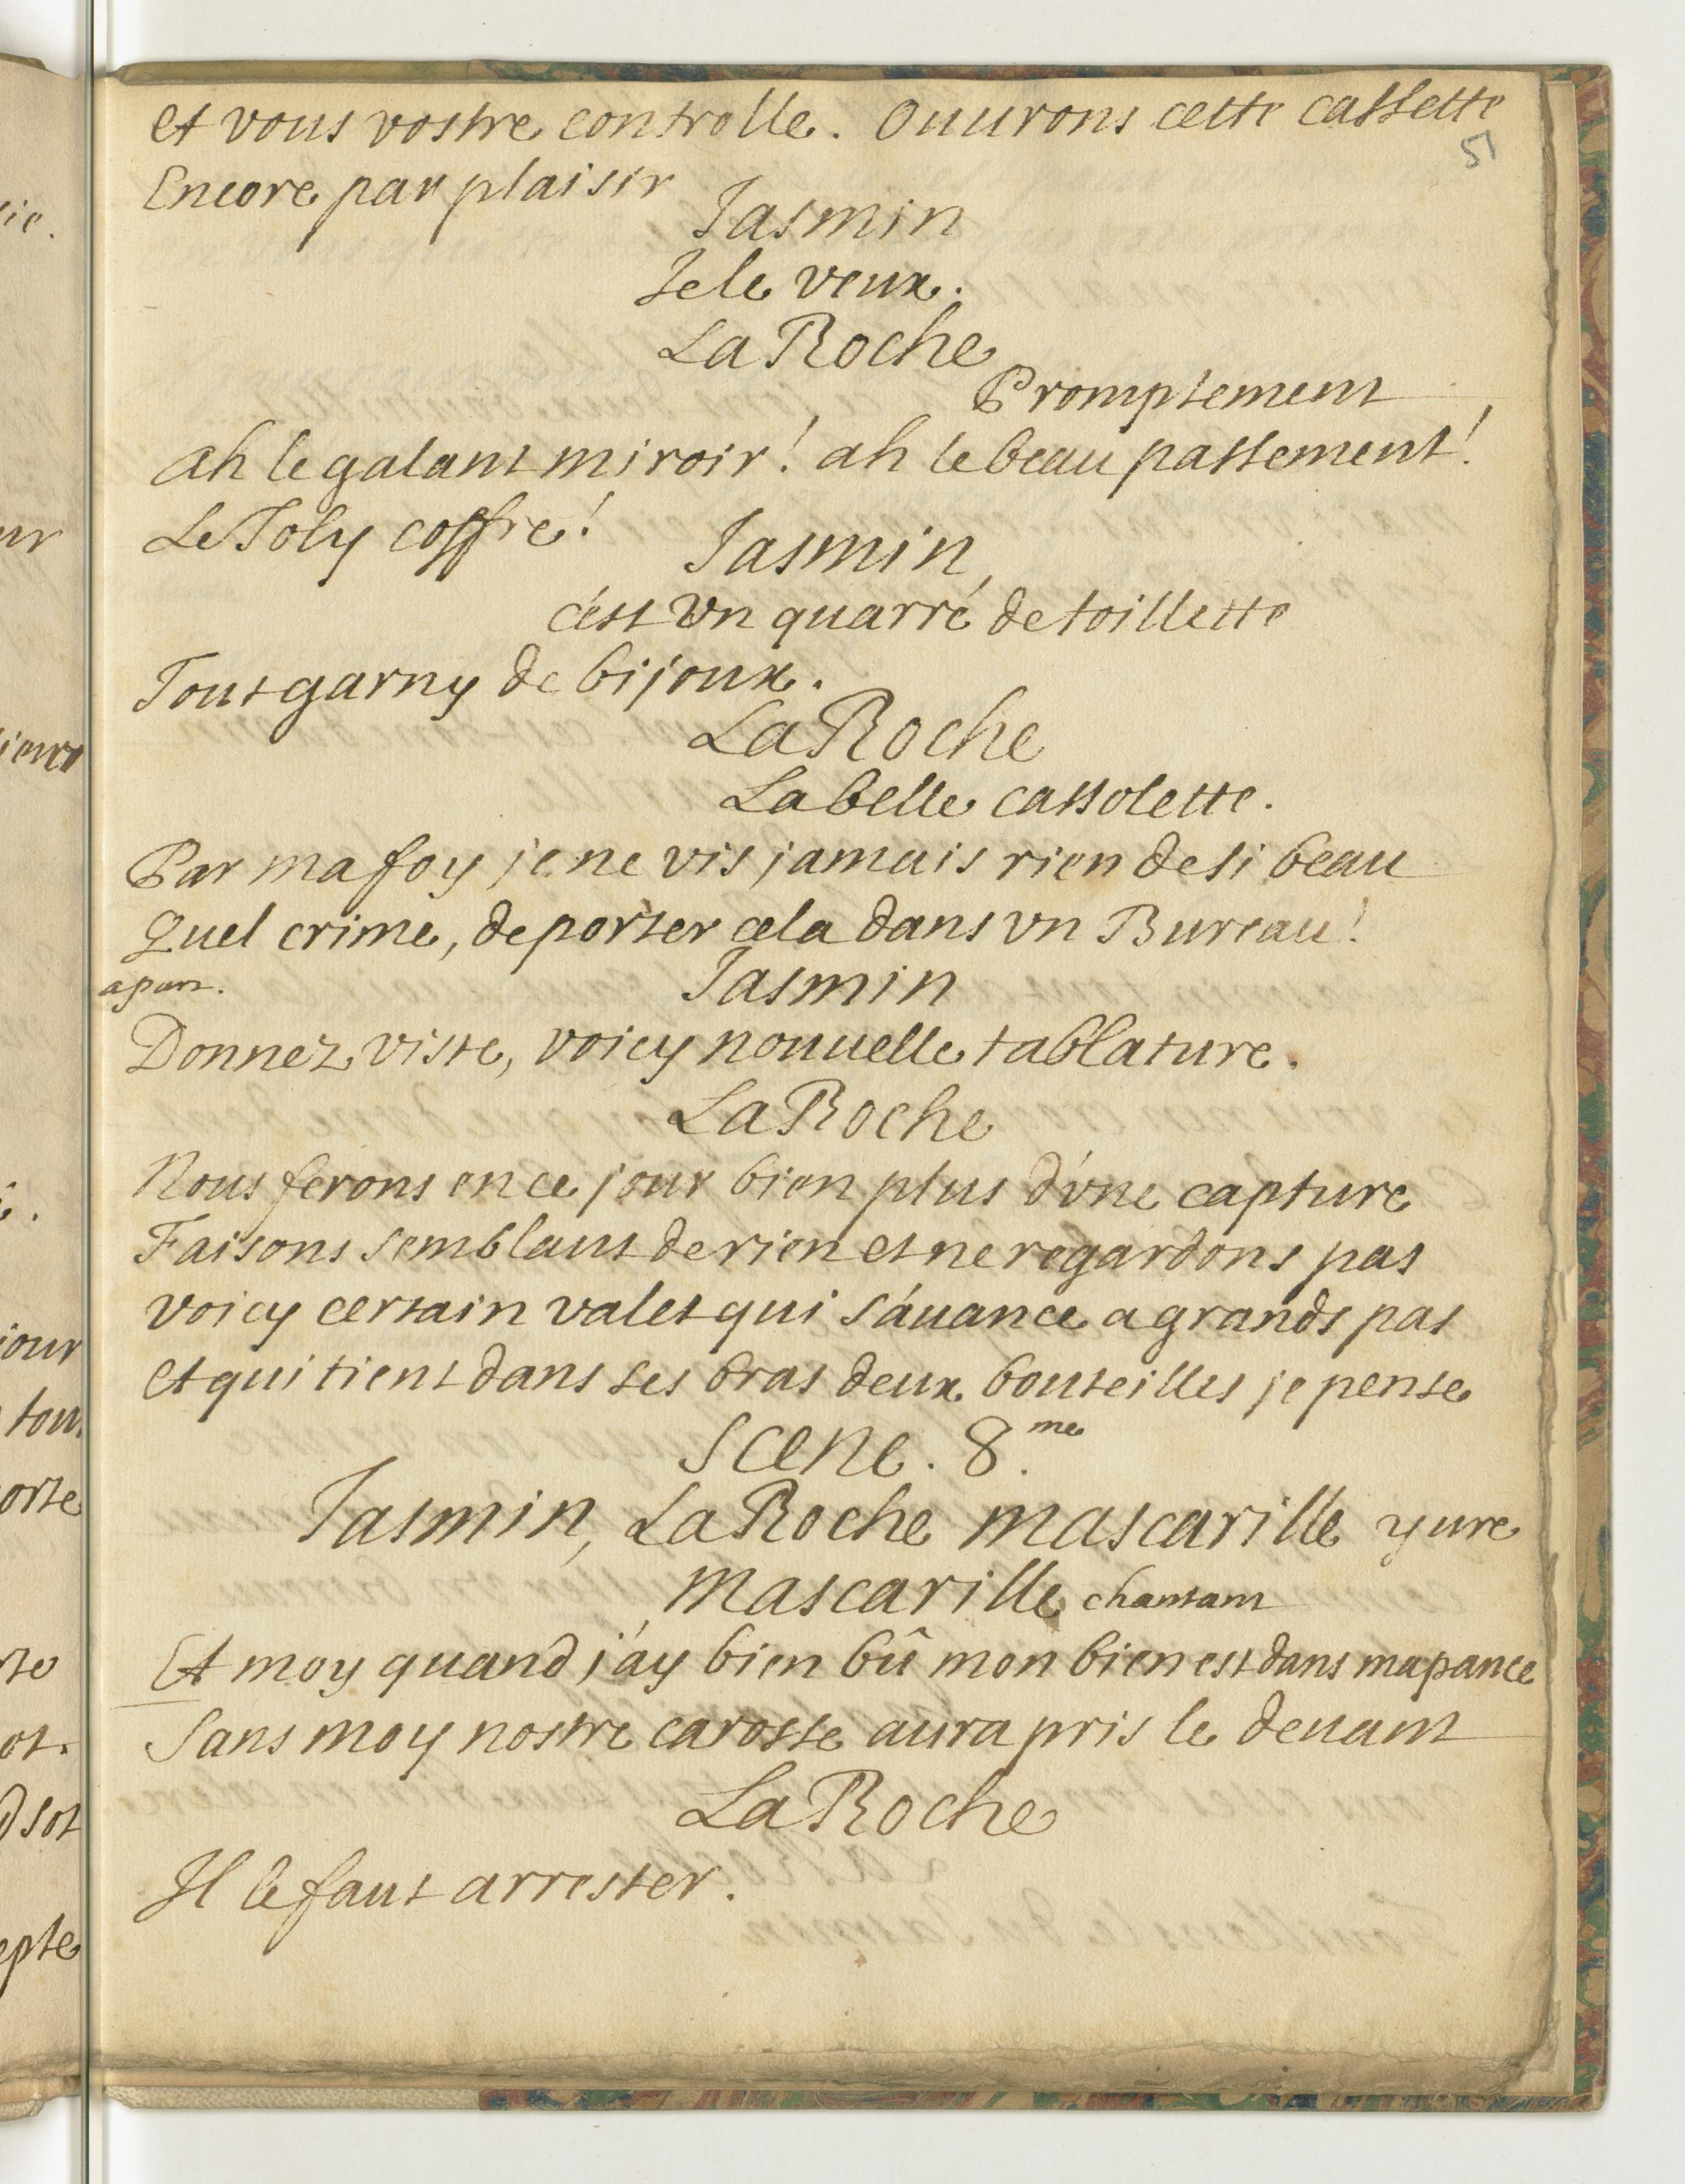 et vous vostre controlle. Ouurons cette cassette
51
Encore par plaisir
Jasmin
Je le veux.
La Roche
Promptement
ah le galant miroir! ah le beau passement!
Le Joly coffre!
Jasmin,
c'est Vn quarré de toillette
Tout garny de bijoux.
La Roche
La belle cassolette.
Par ma foy je ne vis jamais rien de si beau
Quel crime, de porter cela dans vn Bureau!
apart.
Jasmin
Donnez viste, voicy nouuelle tablature.
La Roche
Nous ferons en ce jour bien plus d'vne capture
Faisons semblant de rien et ne regardons pas
voicy certain valet qui s'auance a grands pas
et qui tient dans ses bras deux bouteilles je pense
Scene. 8.me
Jasmin, La Roche Mascarille yure
Mascarille chantant
Et moy quand j'ay bien bû mon bien est dans ma pance
Sans moy nostre carosse aura pris le deuant
La Roche
Il le faut arrester.